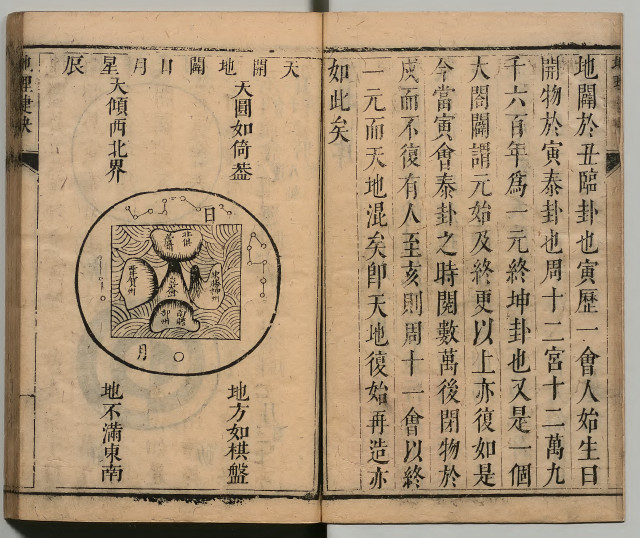 地闢於丑臨卦也寅歷一會人始生曰
開物於寅泰卦也周十二宮十二萬九
千六百年爲一元終坤卦也又是一個
大闔闢謂元始及終更以上亦復如是
今當寅會泰卦之時閱數萬後閉物於
戌而不復有人至亥則周十一會以終
一元而天地混矣卽天地復始再造亦
如此矣
天開地闢日月星辰
天圓如倚葢
大傾西北界
日
北俱
東勝神州
賀州
南贍
部州
月
地方如棋盤
地不滿東南
地理